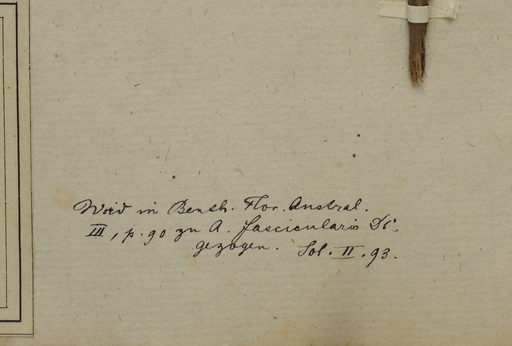 Wird in Benth. Flor. Austral.
III, p. 90 zu A. fascicularis DC.
gezogen. Sol. II. 93.